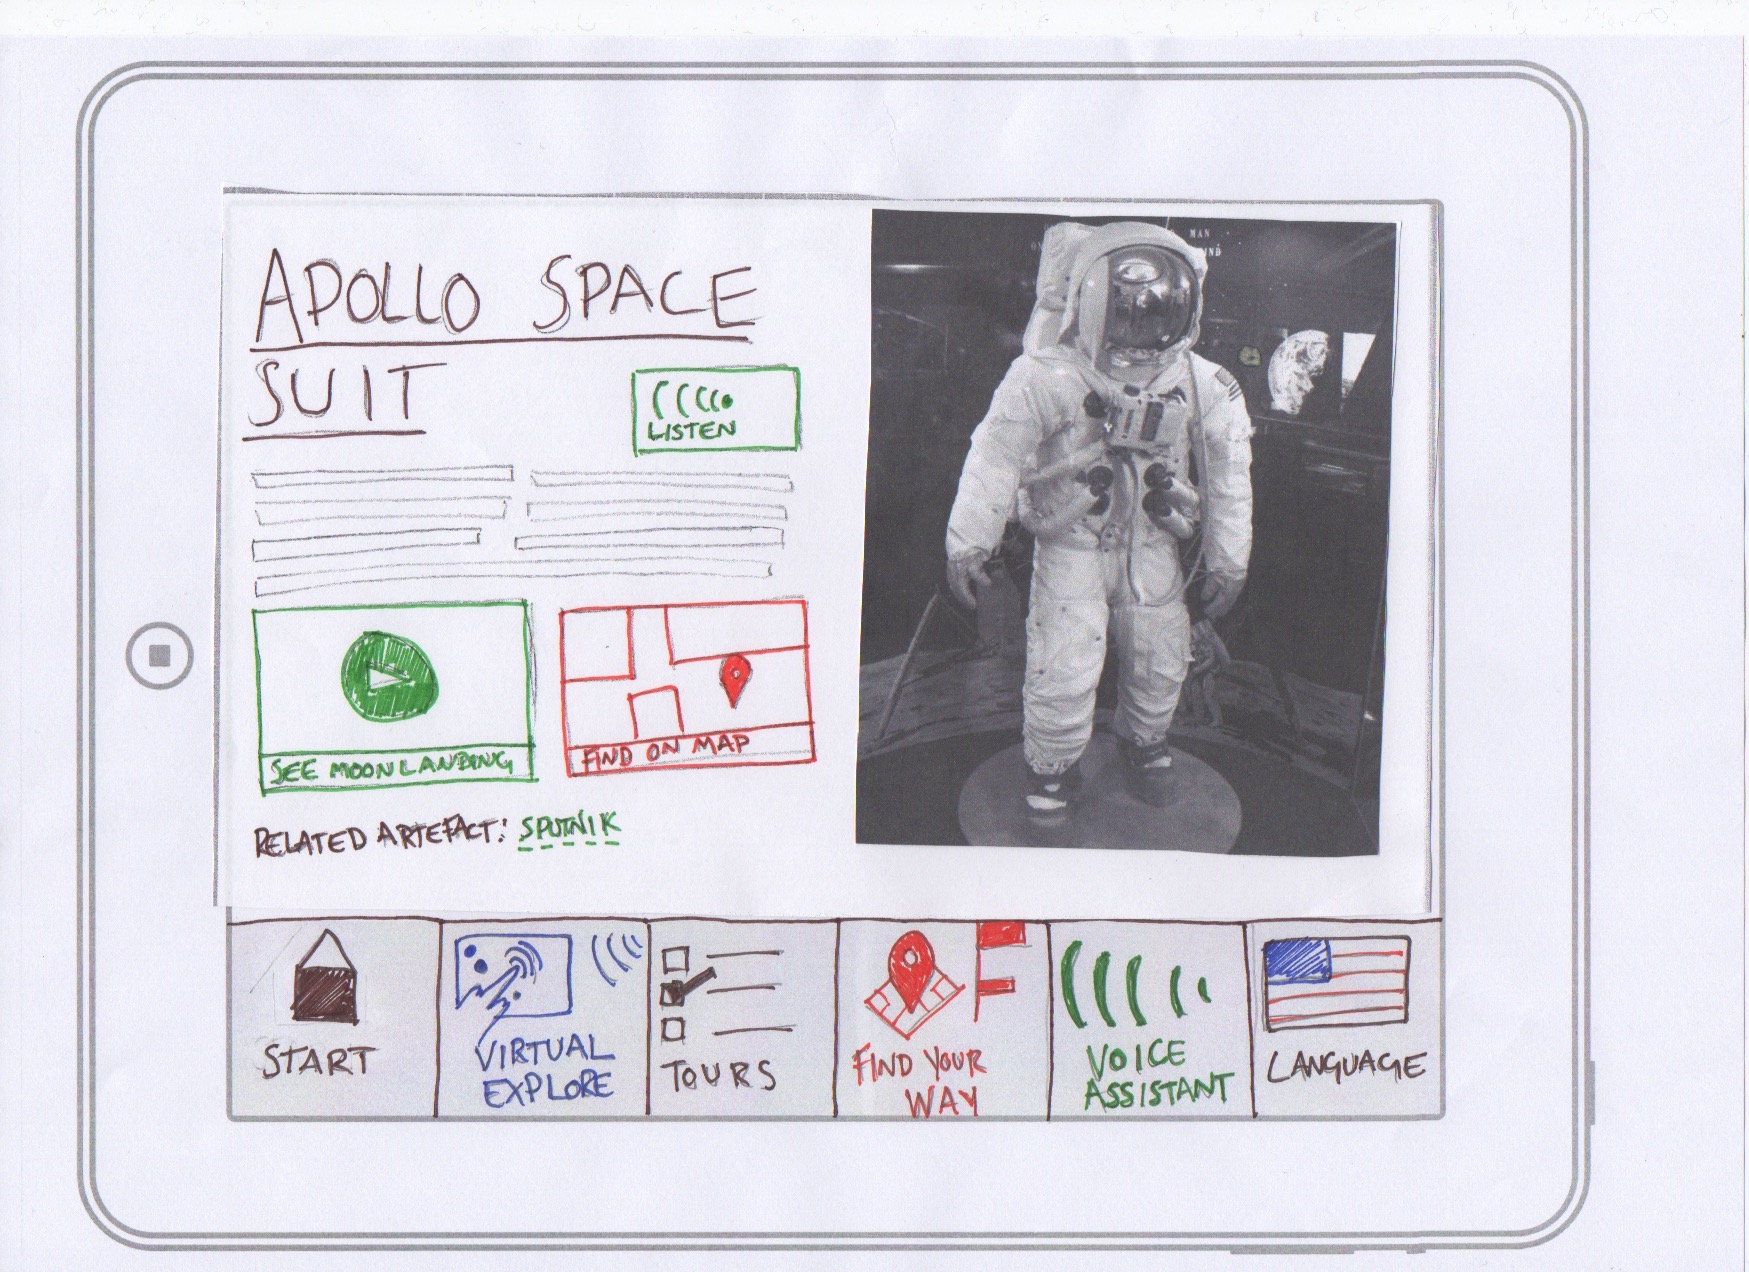 APOLLO SPACE
SUIT
LISTEN
SEE MOONLANDING
FIND ON MAP
RELATED ARTEFACT: SPUTNIK
MAN
START
VIRTUAL
EXPLORE
TOURS
FIND YOUR
WAY
VOICE
ASSISTANT
LANGUAGE